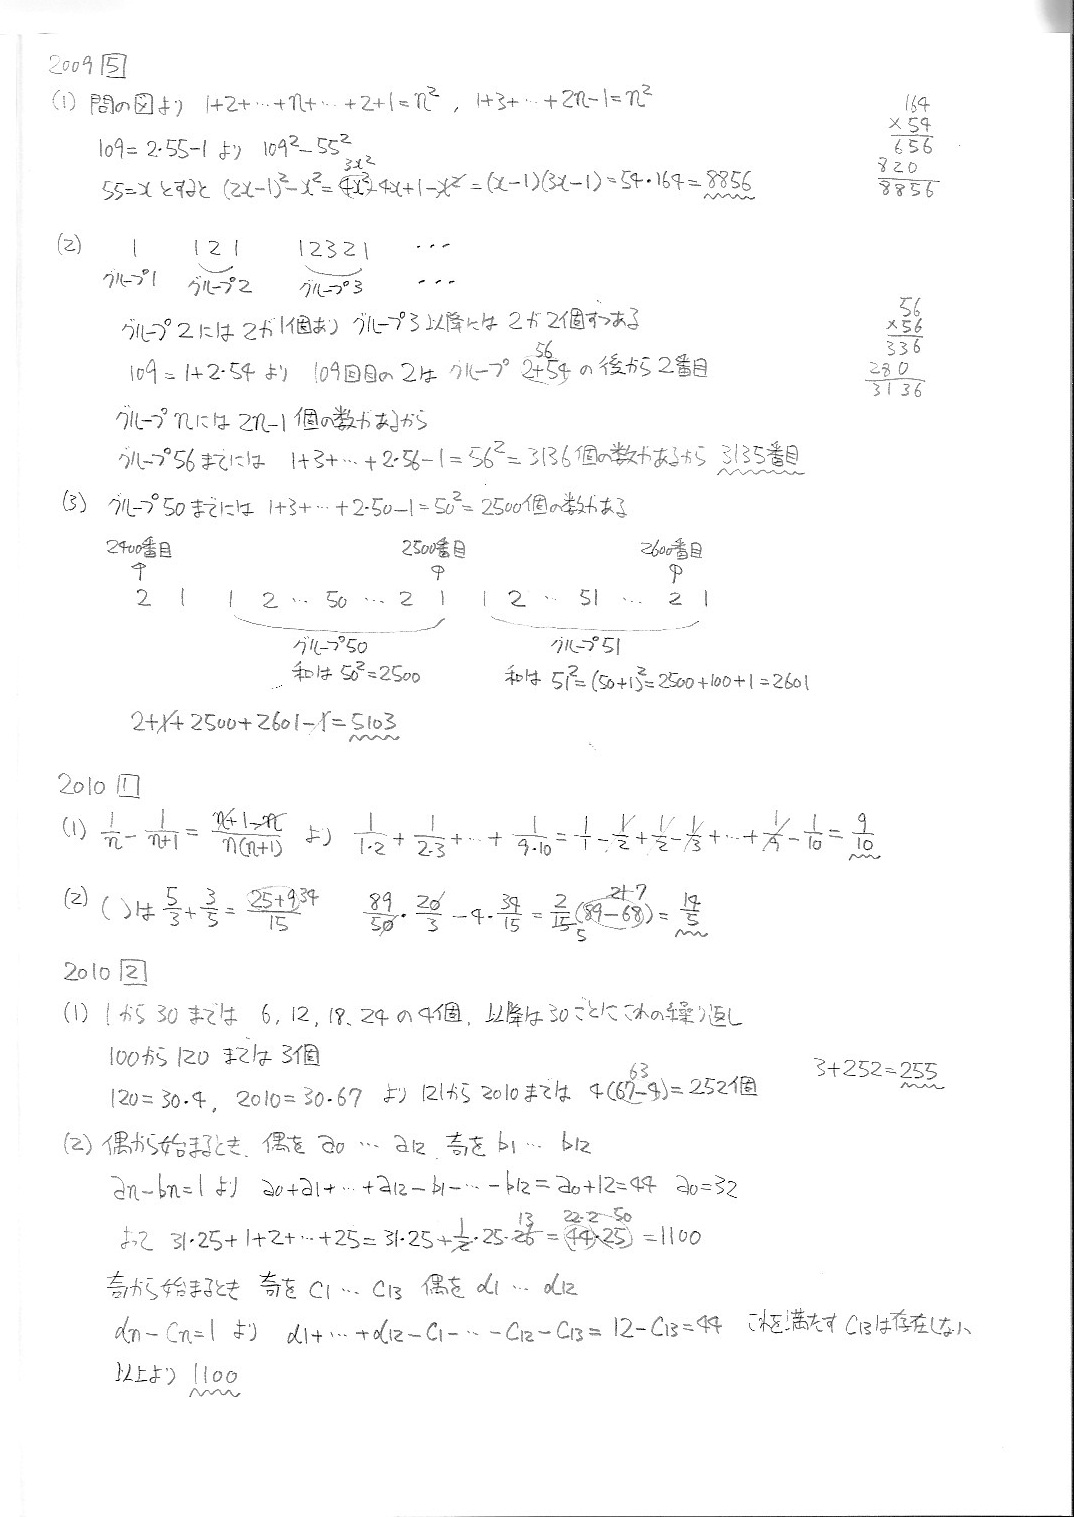 2009 5
(1) 問の図より 1+2+…+n+…+2+1=n², 1+3+…+2n-1=n²
109=2・55-1 より 109²-55²
3x²
55=x とすると (2x-1)²-x²=4x²-4x+1-x²=(x-1)(3x-1)=54・164=8856
164
×54
656
820
8856
(2) 1 1 2 1 1 2 3 2 1 …
グループ1 グループ2 グループ3 …
グループ2には2が1個あり グループ3以降には2が2個ずつある
56
109=1+2・54 より 109回目の2は グループ 2+54 の後から2番目
グループnには2n-1個の数があるから
グループ56までには 1+3+…+2・56-1=56²=3136個の数があるから 3135番目
56
×56
336
280
3136
(3) グループ50までには 1+3+…+2・50-1=50²=2500個の数がある
2400番目 2500番目 2600番目
↑ ↑ ↑
2 1 1 2 … 50 … 2 1 1 2 … 51 … 2 1
グループ50 グループ51
和は 50²=2500 和は 51²=(50+1)²=2500+100+1=2601
2+1+2500+2601-1=5103
2010 1
(1) 1/n - 1/(n+1) = (n+1-n)/(n(n+1)) より 1/(1・2) + 1/(2・3) +…+ 1/(9・10) = 1/1 - 1/2 + 1/2 - 1/3 +…+ 1/9 - 1/10 = 9/10
(2) ( )は 5/3 + 3/5 = (25+9)/15 34 89/50・20/3 - 4・34/15 = 2/15 (89-68) = 14/5
21 7
5
2010 2
(1) 1から30までは 6, 12, 18, 24 の4個, 以降は30ごとにこれの繰り返し
100から120までは3個
63
120=30・4, 2010=30・67 より 121から2010までは 4(67-4)=252個
3+252=255
(2) 偶から始まるとき, 偶を a0 … a12 奇を b1 … b12
an-bn=1より a0+a1+…+a12-b1-…-b12=a0+12=44 a0=32
13 22・2 50
よって 31・25+1+2+…+25=31・25+1/2・25・26=44・25=1100
奇から始まるとき 奇を c1 … c13 偶を d1 … d12
dn-cn=1 より d1+…+d12-c1-…-c12-c13=12-c13=44 これを満たす c13は存在しない
以上より 1100